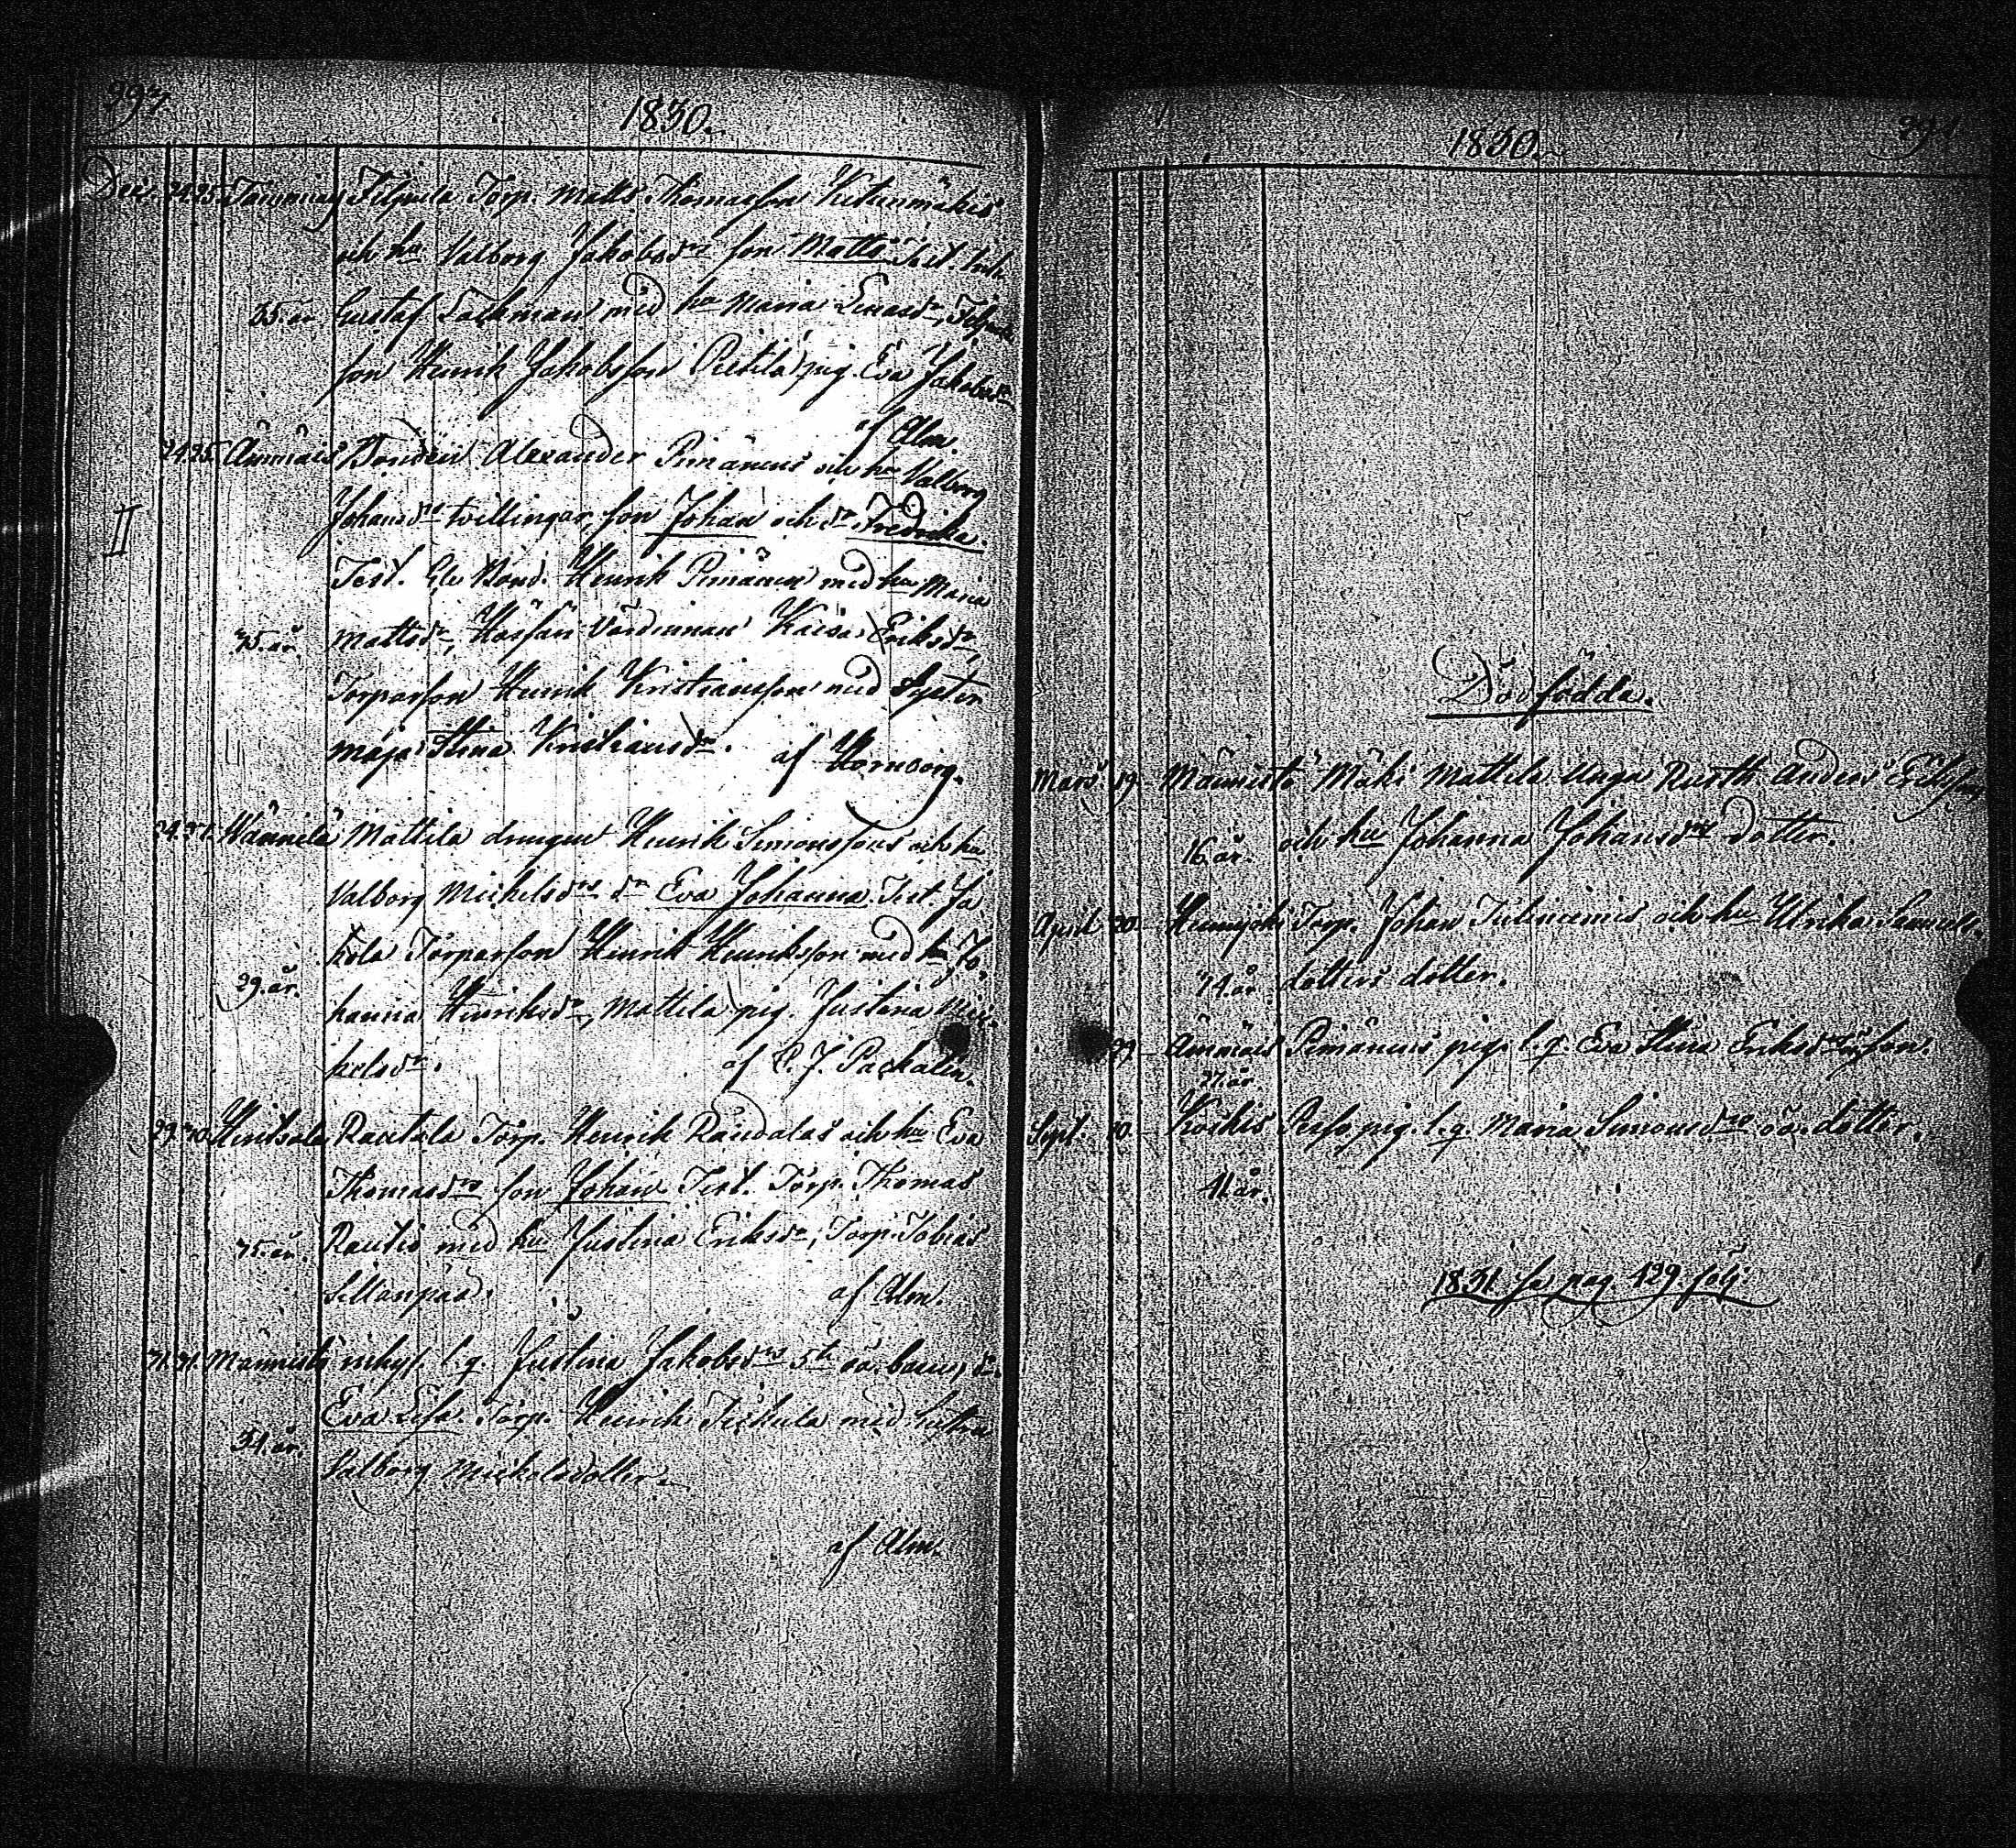 1830.
Dec. 24. 25. Tammiag Filpula Torp. Matts Thomasson Kitunmäkis
och hu Valborg Jakobsdrs son Matts Test. Inh.
35. år. Gustaf Tackman med hu Maria Lucasdr, Filpula
son Henrik Jakobsson Pietila, pig. Eva Jakobsdr
af Alm.
24. 25. Ämmäis Bonden Alexander Pimänens och hu Valborg
II Johansdrs tvillingar, son Johan och dr Fredrika.
Test. Gle Bond. Henrik Pimänen med hu Maria
35. år. Mattsdr, Kossan Värdinnan Kaisa Eriksdr,
Torparson Henrik Kristiansson med Syster
Maja Stina Kristiansdr. af Hornborg.
24. 31. Wännilä Mattila drengen Henrik Simonssons och hu
Valborg Michelsdrs dr Eva Johanna. Test. Ja
kola Torparson Henrik Henriksson med hu Jo
29. år. hanna Henriksdr, Mattila pig. Justina Mic
kelsdr. af P. J. Pachalin.
29. 30. Hintsala Rautala Torp. Henrik Raudalas och hu Eva
Thomasdrs son Johan Test. Torp. Thomas
35. år. Rautio med hu Justina Eriksdr, Torp. Tobias
Sillanpää. af Alm.
31. 31. Männistö inhys. l. q. Justina Jakobsdrs 5te oä. barn, dr
Eva Lisa. Torp. Henrik Tickula med hustru
34. år.
Valborg Mickelsdotter.
af Alm.
1830.
Dödfödde.
Mars. 19. Männistö Mäki Mattila Unga Rusth. Anders Erikssons
16. år. och hu Johanna Johansdrs dotter.
April 20. Hennijoki Torp. Johan Tuleniemis och hu Ulrika Samuels-
34. år. dotters dotter.
29. Ämmäis Pimänens pig. l. q. Eva Stina Eriksdrs oä. son.
21. år.
Sept. 10. Koskis Rass pig. l. q. Maria Simonsdrs oä. dotter.
41. år.
1831. se pag. 429. följ.